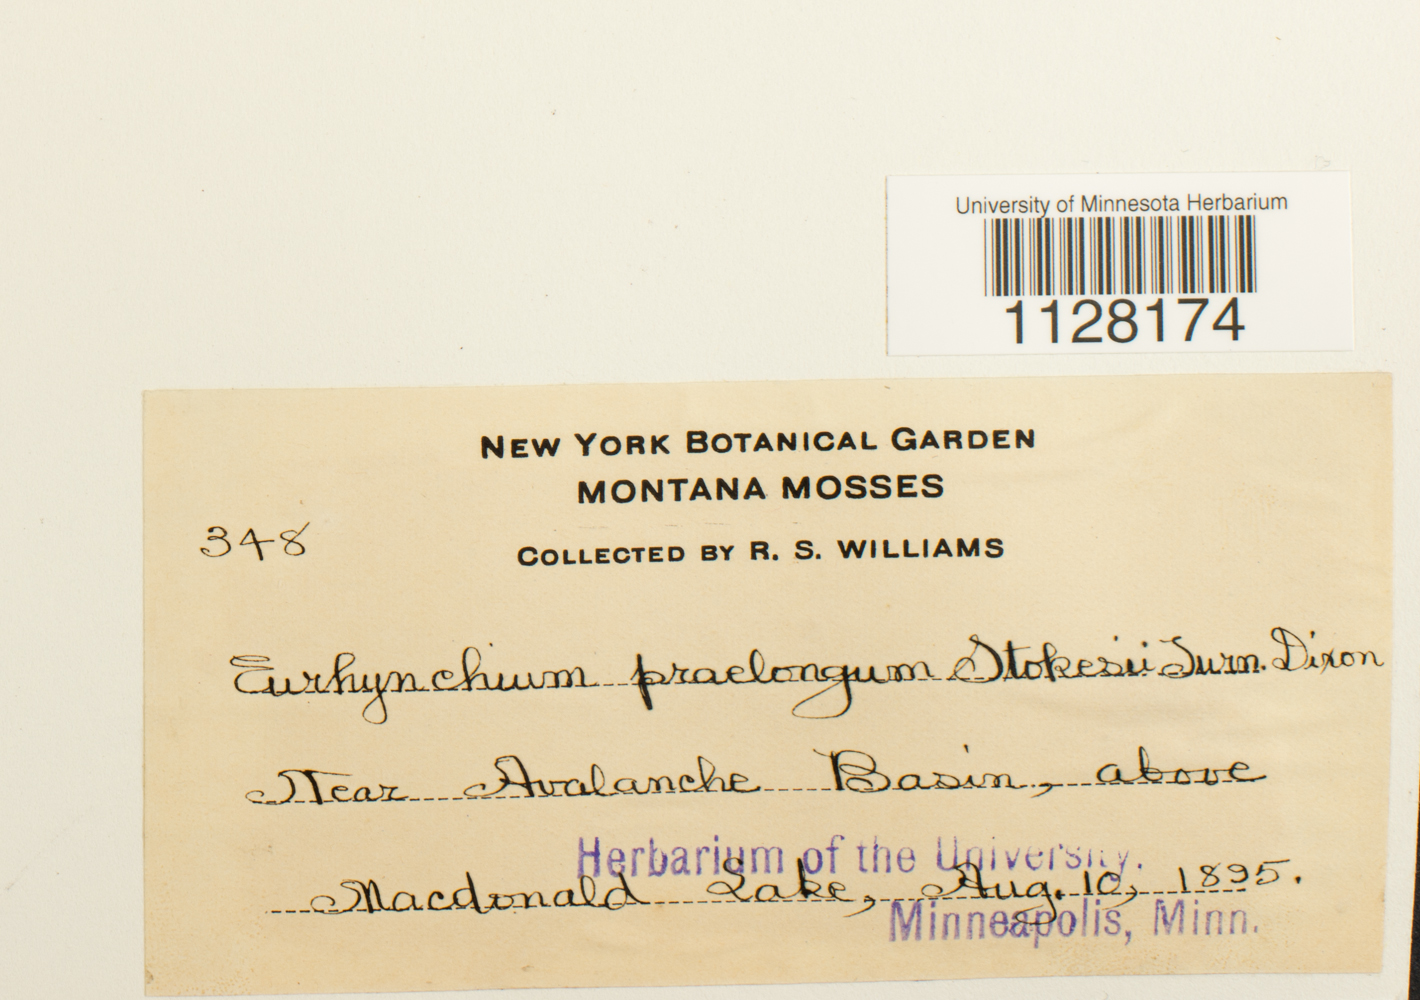 University of Minnesota Herbarium
1128174
NEW YORK BOTANICAL GARDEN
MONTANA MOSSES
348
COLLECTED BY R. S. WILLIAMS
Eurhynchium praelongum Stokesii Turn. Dixon
Near Avalanche Basin, above
Herbarium of the University.
Macdonald Lake, Aug. 10, 1895.
Minneapolis, Minn.